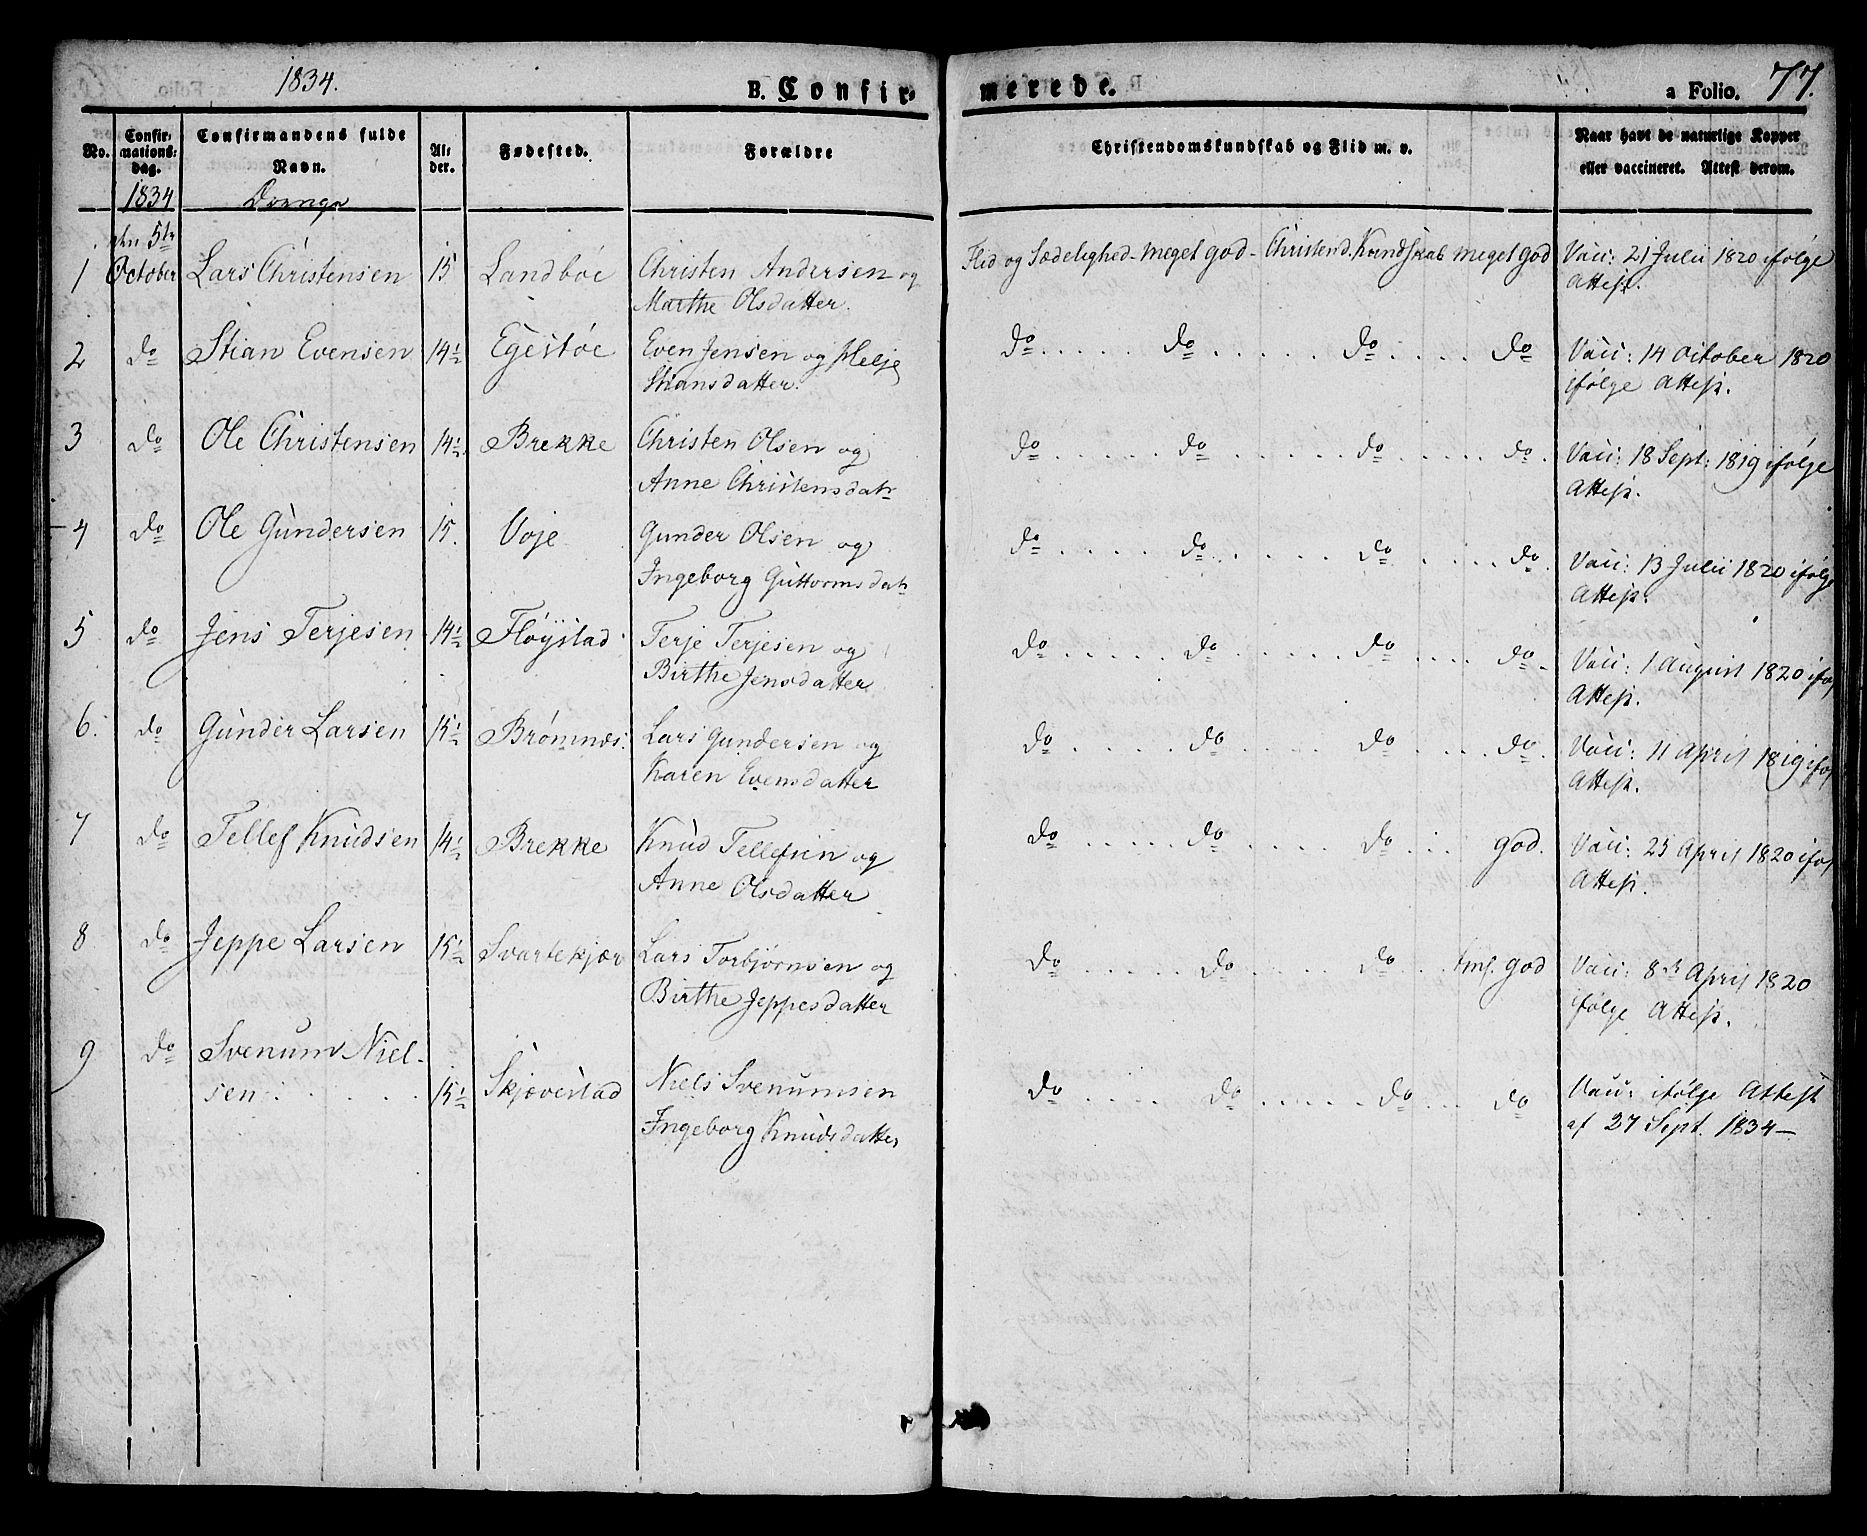 1834.
B. Confir-
merede.
a Folio. 77.
No.
Confir-
mations-
dag.
Confirmandens fulde
Navn.
Al-
der.
Fødested.
Forældre
Christendomskundskab og Flid m. v.
Naar havt de naturlige Kopper
eller vaccineret. Attest derom.
1834
Drenge
5te
1 October Lars Christensen 15 Landbøe Christen Andersen og
Marthe Olsdatter.
Flid og Sædelighed - meget god - Christend. Kundskab meget god
Vacc: 21 Julii 1820 ifølge
Attest.
2 do Stian Evensen 14½ Egestøe Even Jensen og Helje
Stiansdatter.
do do do do
Vacc: 14 October 1820
ifølge Attest.
3 do Ole Christensen 14½ Brekke Christen Olsen og
Anne Christensdatr
do do do do.
Vacc: 18 Sept: 1819 ifølge
Attest.
4 do Ole Gundersen 15. Voje Gunder Olsen og
Ingeborg Guttormsdatr
do do do do.
Vacc: 13 Julii 1820 ifølge
Attest.
5 do Jens Terjesen 14½ Fløystad Terje Terjesen og
Birthe Jensdatter
do do do do
Vacc: 1 August 1820 iføl
Attest.
6. do Gunder Larsen 15½ Brømnæs. Lars Gundersen og
Karen Evensdatter
do do do do.
Vacc: 11 April 1819 iføl
Attest.
7 do Tellef Knudsen 14½ Brekke Knud Tellefsen og
Anne Olsdatter
do do do god.
Vacc: 23 April 1820 iføl
Attest.
8 do Jeppe Larsen 15½ Svartekjær Lars Torbjørnsen og
Birthe Jeppesdatter
do do do tml. god
Vacc: 8de April 1820
ifølge Attest.
9 do Svenum Niel-
sen 15½ Skjævestad Niels Svenumsen
Ingeborg Knudsdatter
do do do do
Vacc: ifølge Attest
af 27 Sept. 1834 -